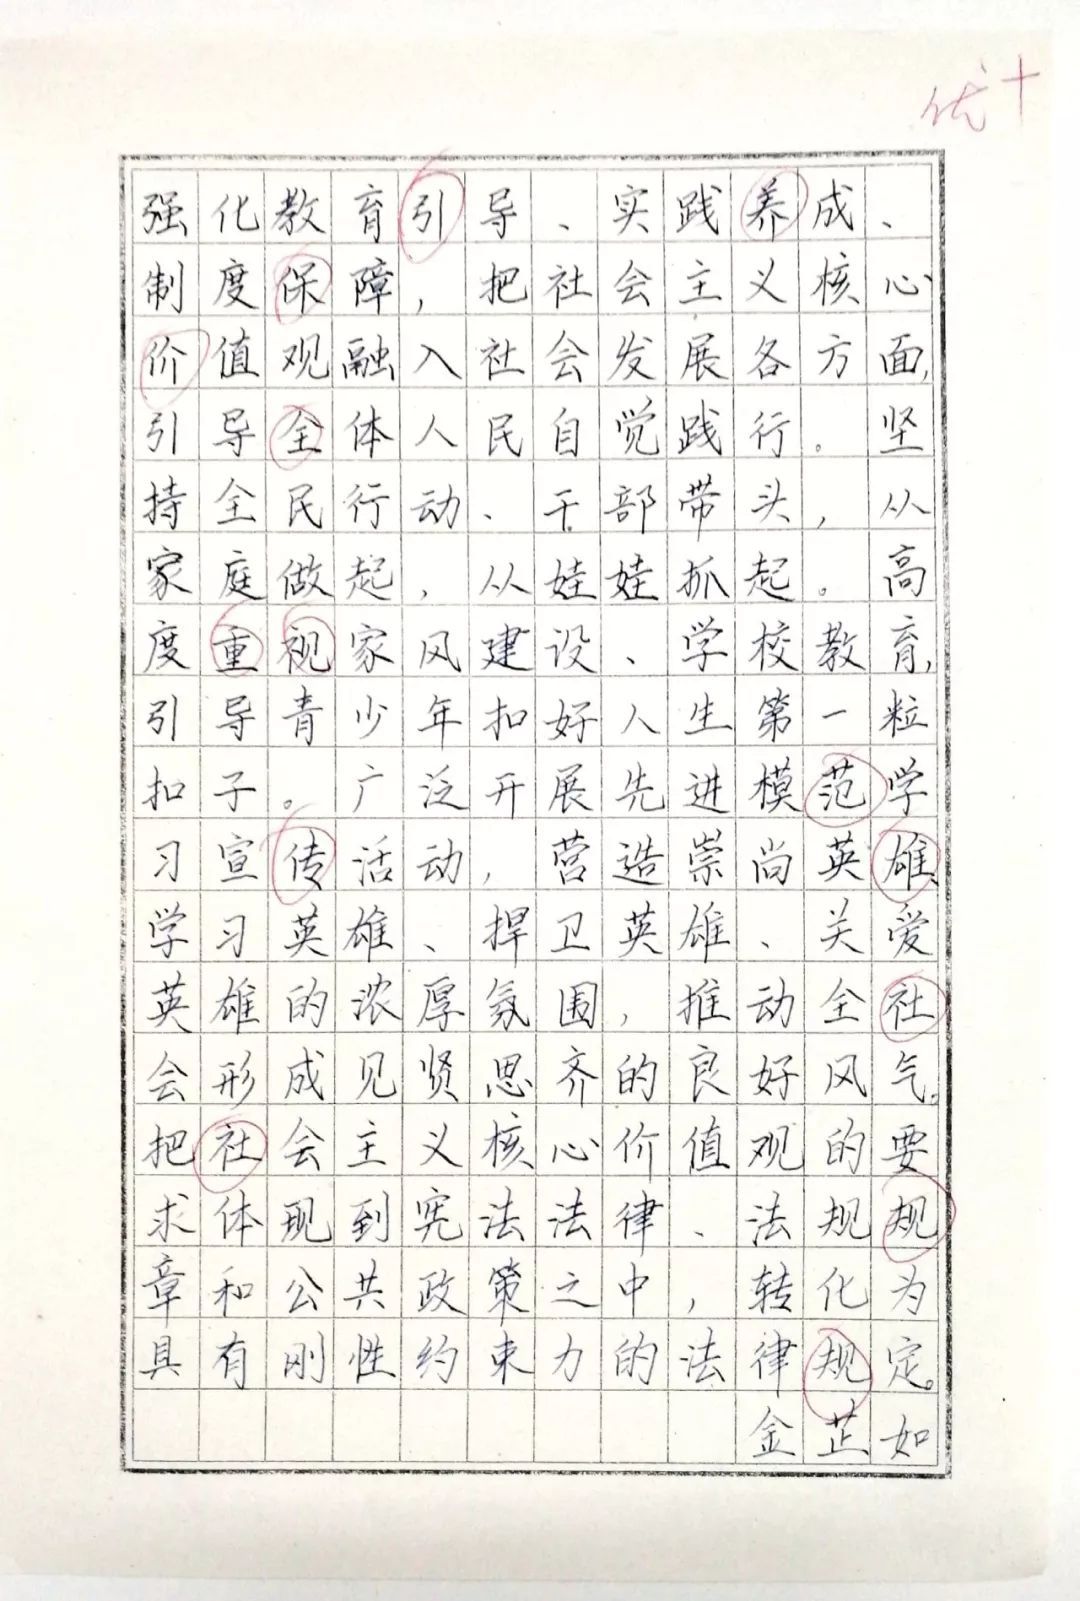 优+
强化教育引导、实践养成、
制度保障，把社会主义核心
价值观融入社会发展各方面，
引导全体人民自觉践行。坚
持全民行动、干部带头，从
家庭做起，从娃娃抓起。高
度重视家风建设、学校教育，
引导青少年扣好人生第一粒
扣子。广泛开展先进模范学
习宣传活动，营造崇尚英雄、
学习英雄、捍卫英雄、关爱
英雄的浓厚氛围，推动全社
会形成见贤思齐的良好风气。
把社会主义核心价值观的要
求体现到宪法法律、法规规
章和公共政策之中，转化为
具有刚性约束力的法律规定。
金芷如